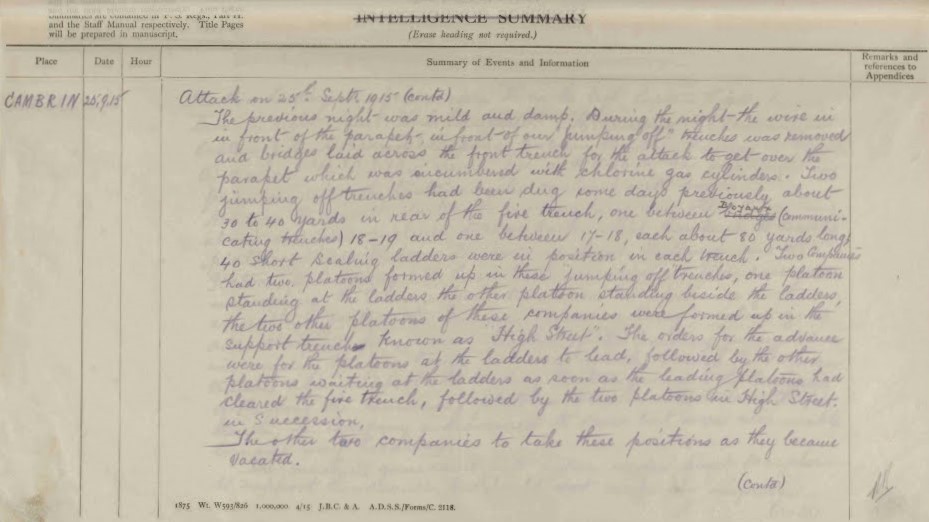 Summaries are contained in F. S. Regs., Part II.
and the Staff Manual respectively. Title Pages
will be prepared in manuscript.
INTELLIGENCE SUMMARY
(Erase heading not required.)
Place
Date
Hour
Summary of Events and Information
Remarks and
references to
Appendices
CAMBRIN 25.9.15
Attack on 25th Septr 1915 (contd)
The previous night was mild and damp. During the night the wire in
in front of the parapet in front of our "jumping off" trenches was removed
and bridges laid across the front trench for the attack to get over the
parapet which was encumbered with chlorine gas cylinders. Two
jumping off trenches had been dug some days previously about
30 to 40 yards in rear of the fire trench, one between Boyaux (communi-
cating trenches) 18-19 and one between 17-18, each about 80 yards long,
40 short scaling ladders were in position in each trench. Two Companies
had two platoons formed up in these jumping off trenches, one platoon
standing at the ladders the other platoon standing beside the ladders,
the two other platoons of these companies were formed up in the
support trench known as "High Street". The orders for the advance
were for the platoons at the ladders to lead, followed by the other
platoons waiting at the ladders as soon as the leading platoons had
cleared the fire trench, followed by the two platoons in High Street.
in succession.
The other two companies to take these positions as they became
vacated.
(Contd)
1875 Wt. W593/826 1,000,000 4/15 J.B.C. & A. A.D.S.S./Forms/C. 2118.